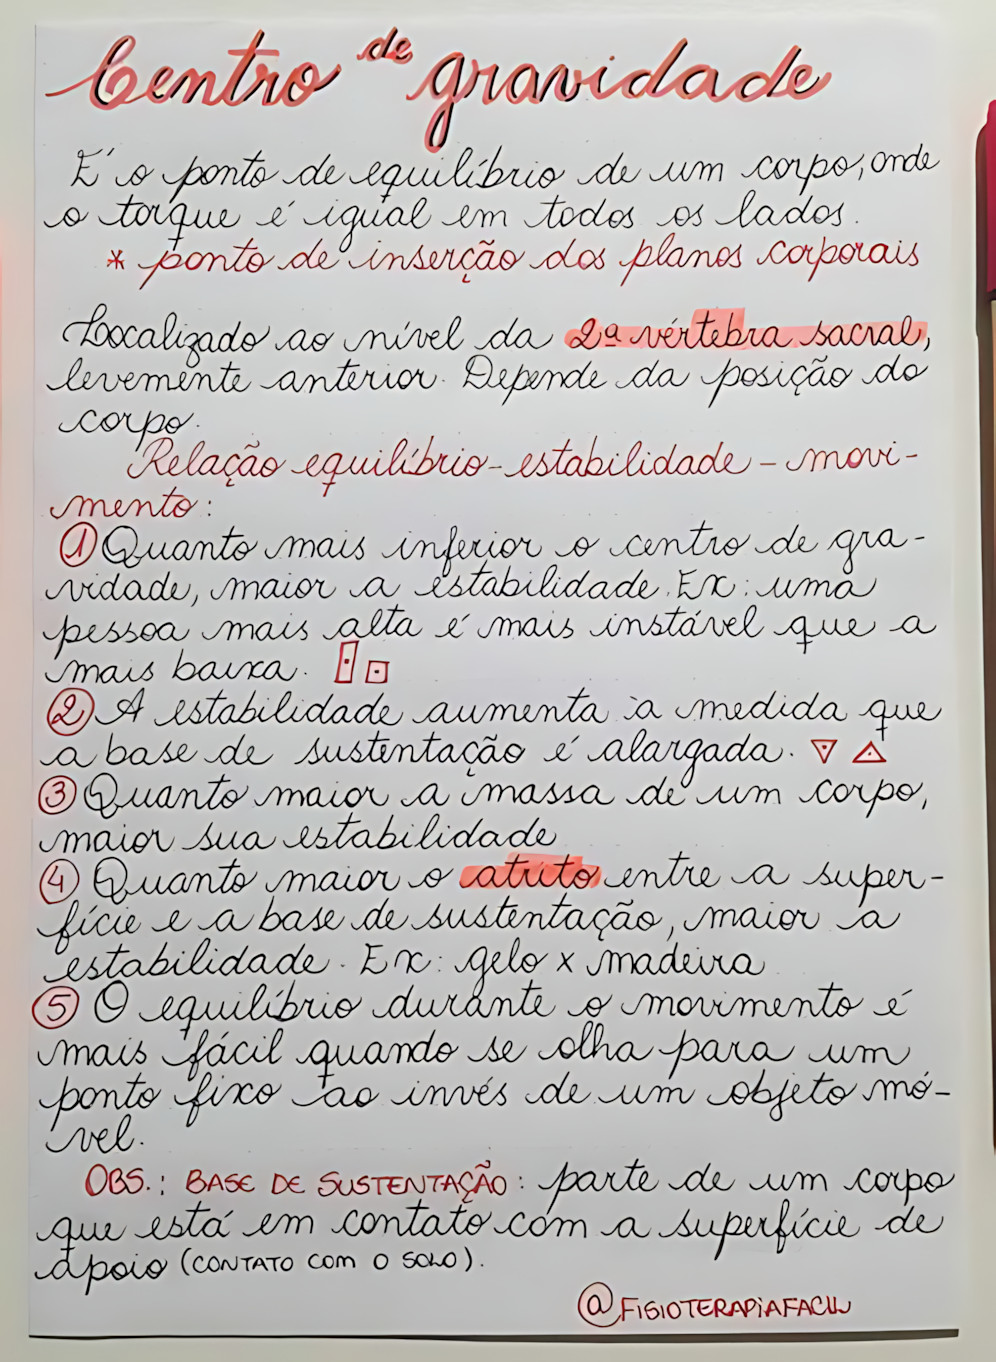 Centro de gravidade
É o ponto de equilíbrio de um corpo, onde
o torque é igual em todos os lados.
* ponto de inserção dos planos corporais
Localizado ao nível da 2ª vértebra sacral,
levemente anterior. Depende da posição do
corpo.
Relação equilíbrio-estabilidade-movi-
mento:
1 Quanto mais inferior o centro de gra-
vidade, maior a estabilidade. Ex: uma
pessoa mais alta é mais instável que a
mais baixa.
2 A estabilidade aumenta à medida que
a base de sustentação é alargada.
3 Quanto maior a massa de um corpo,
maior sua estabilidade
4 Quanto maior o atrito entre a super-
fície e a base de sustentação, maior a
estabilidade. Ex: gelo x madeira
5 O equilíbrio durante o movimento é
mais fácil quando se olha para um
ponto fixo ao invés de um objeto mó-
vel.
OBS.: BASE DE SUSTENTAÇÃO: parte de um corpo
que está em contato com a superfície de
apoio (CONTATO COM O SOLO).
@FISIOTERAPIAFACIL